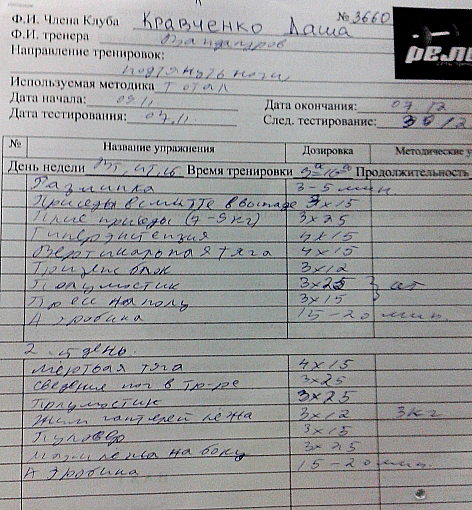 Ф.И. Члена Клуба Кравченко Даша № 3660
Ф.И. тренера
Направление тренировок:
подтянуть ноги
Используемая методика Тотал
Дата начала: 09.11 Дата окончания: 07.12
Дата тестирования: 07.11 След. тестирование: 30/12
№ Название упражнения Дозировка Методические у
День недели Вт, чт, сб Время тренировки Продолжительность
Разминка 3-5 мин.
Приседы в смитте в выпаде 3х15
Плие приседы (7-9 кг) 3х25
Гиперэкстензия 4х15
Вертикальная тяга 4х15
Трицепс блок 3х12
Полумостик 3х25
Пресс на полу 3х15
Аэробика 15-20 мин.
2. день.
Мёртвая тяга 4х15
сведение ног в тр-ре 3х25
Полумостик 3х25
Жим гантелей лёжа 3х12 3кг
Пуловер 3х15
Махи лежа на боку 3х25
Аэробика 15-20 мин.